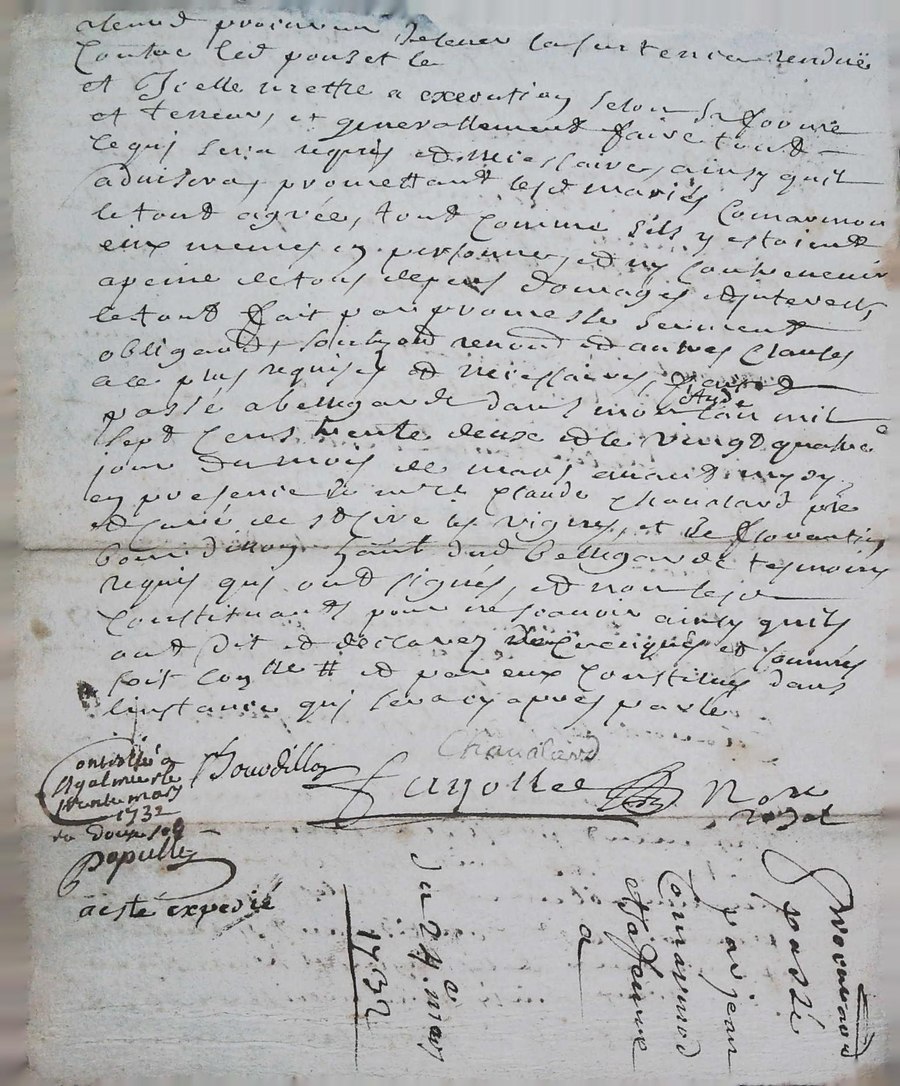 procureur de lever la sentence rendüe
contre led pouzet le
et Jcelle mettre a execution selon sa forme
et teneur, et generallement faire tout
ce quj sera requis et necessaire, ainsy quil
advisera, promettant lesd mariés Comarmon
le tout agréer, tout comme sils y estoient
eux memes en personne, et ny contrevenir
a peine de tous depens domages et interets,
le tout fait par promesse serment
obligaõn, soubzõn renonõn et autres clauses
a ce plus requises et necessaires, fait et
passé a bellegarde dans mon Etude lan mil
sept cens trente deux et le vingt quatre
jour du mois de mars avant mydy
en presence de mre Claude Chaulard pre
et curé de st Cire les vignes, et de florentin
bourdillon habt dud bellegarde tesmoins
requis quj ont signés, et non lesd
constituants pour ne scavoir ainsy quils
ont dit et déclarez de ce enquis et sommés
soit conlle # et par eux constitués dans
linstance quj sera cy apres parlé
Chaulard
Bourdillon
fayolle
Nore
royal
Controllé a
St galmier le
trente mars
1732
Ru douze s
Populle
a esté expedié
procuraõn
passée
par jean
Comarmond
et sa femme
a
Du 24e mars
1732